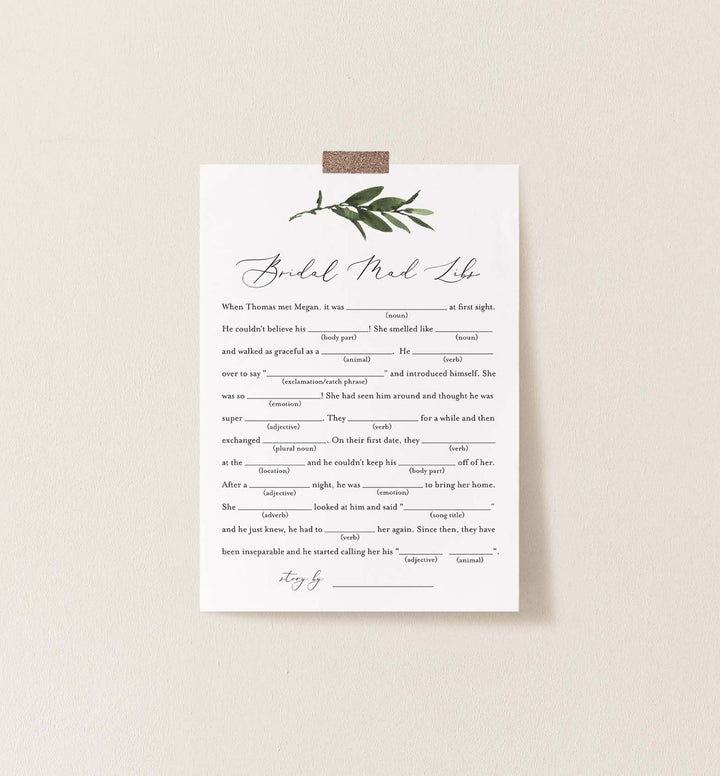 Bridal Mad Libs
When Thomas met Megan, it was ____________ at first sight.
(noun)
He couldn't believe his ____________! She smelled like ____________
(body part) (noun)
and walked as graceful as a ____________. He ____________
(animal) (verb)
over to say "____________" and introduced himself. She
(exclamation/catch phrase)
was so ____________! She had seen him around and thought he was
(emotion)
super ____________. They ____________ for a while and then
(adjective) (verb)
exchanged ____________. On their first date, they ____________
(plural noun) (verb)
at the ____________ and he couldn't keep his ____________ off of her.
(location) (body part)
After a ____________ night, he was ____________ to bring her home.
(adjective) (emotion)
She ____________ looked at him and said "____________"
(adverb) (song title)
and he just knew, he had to ____________ her again. Since then, they have
(verb)
been inseparable and he started calling her his "________ ________".
(adjective) (animal)
story by ____________